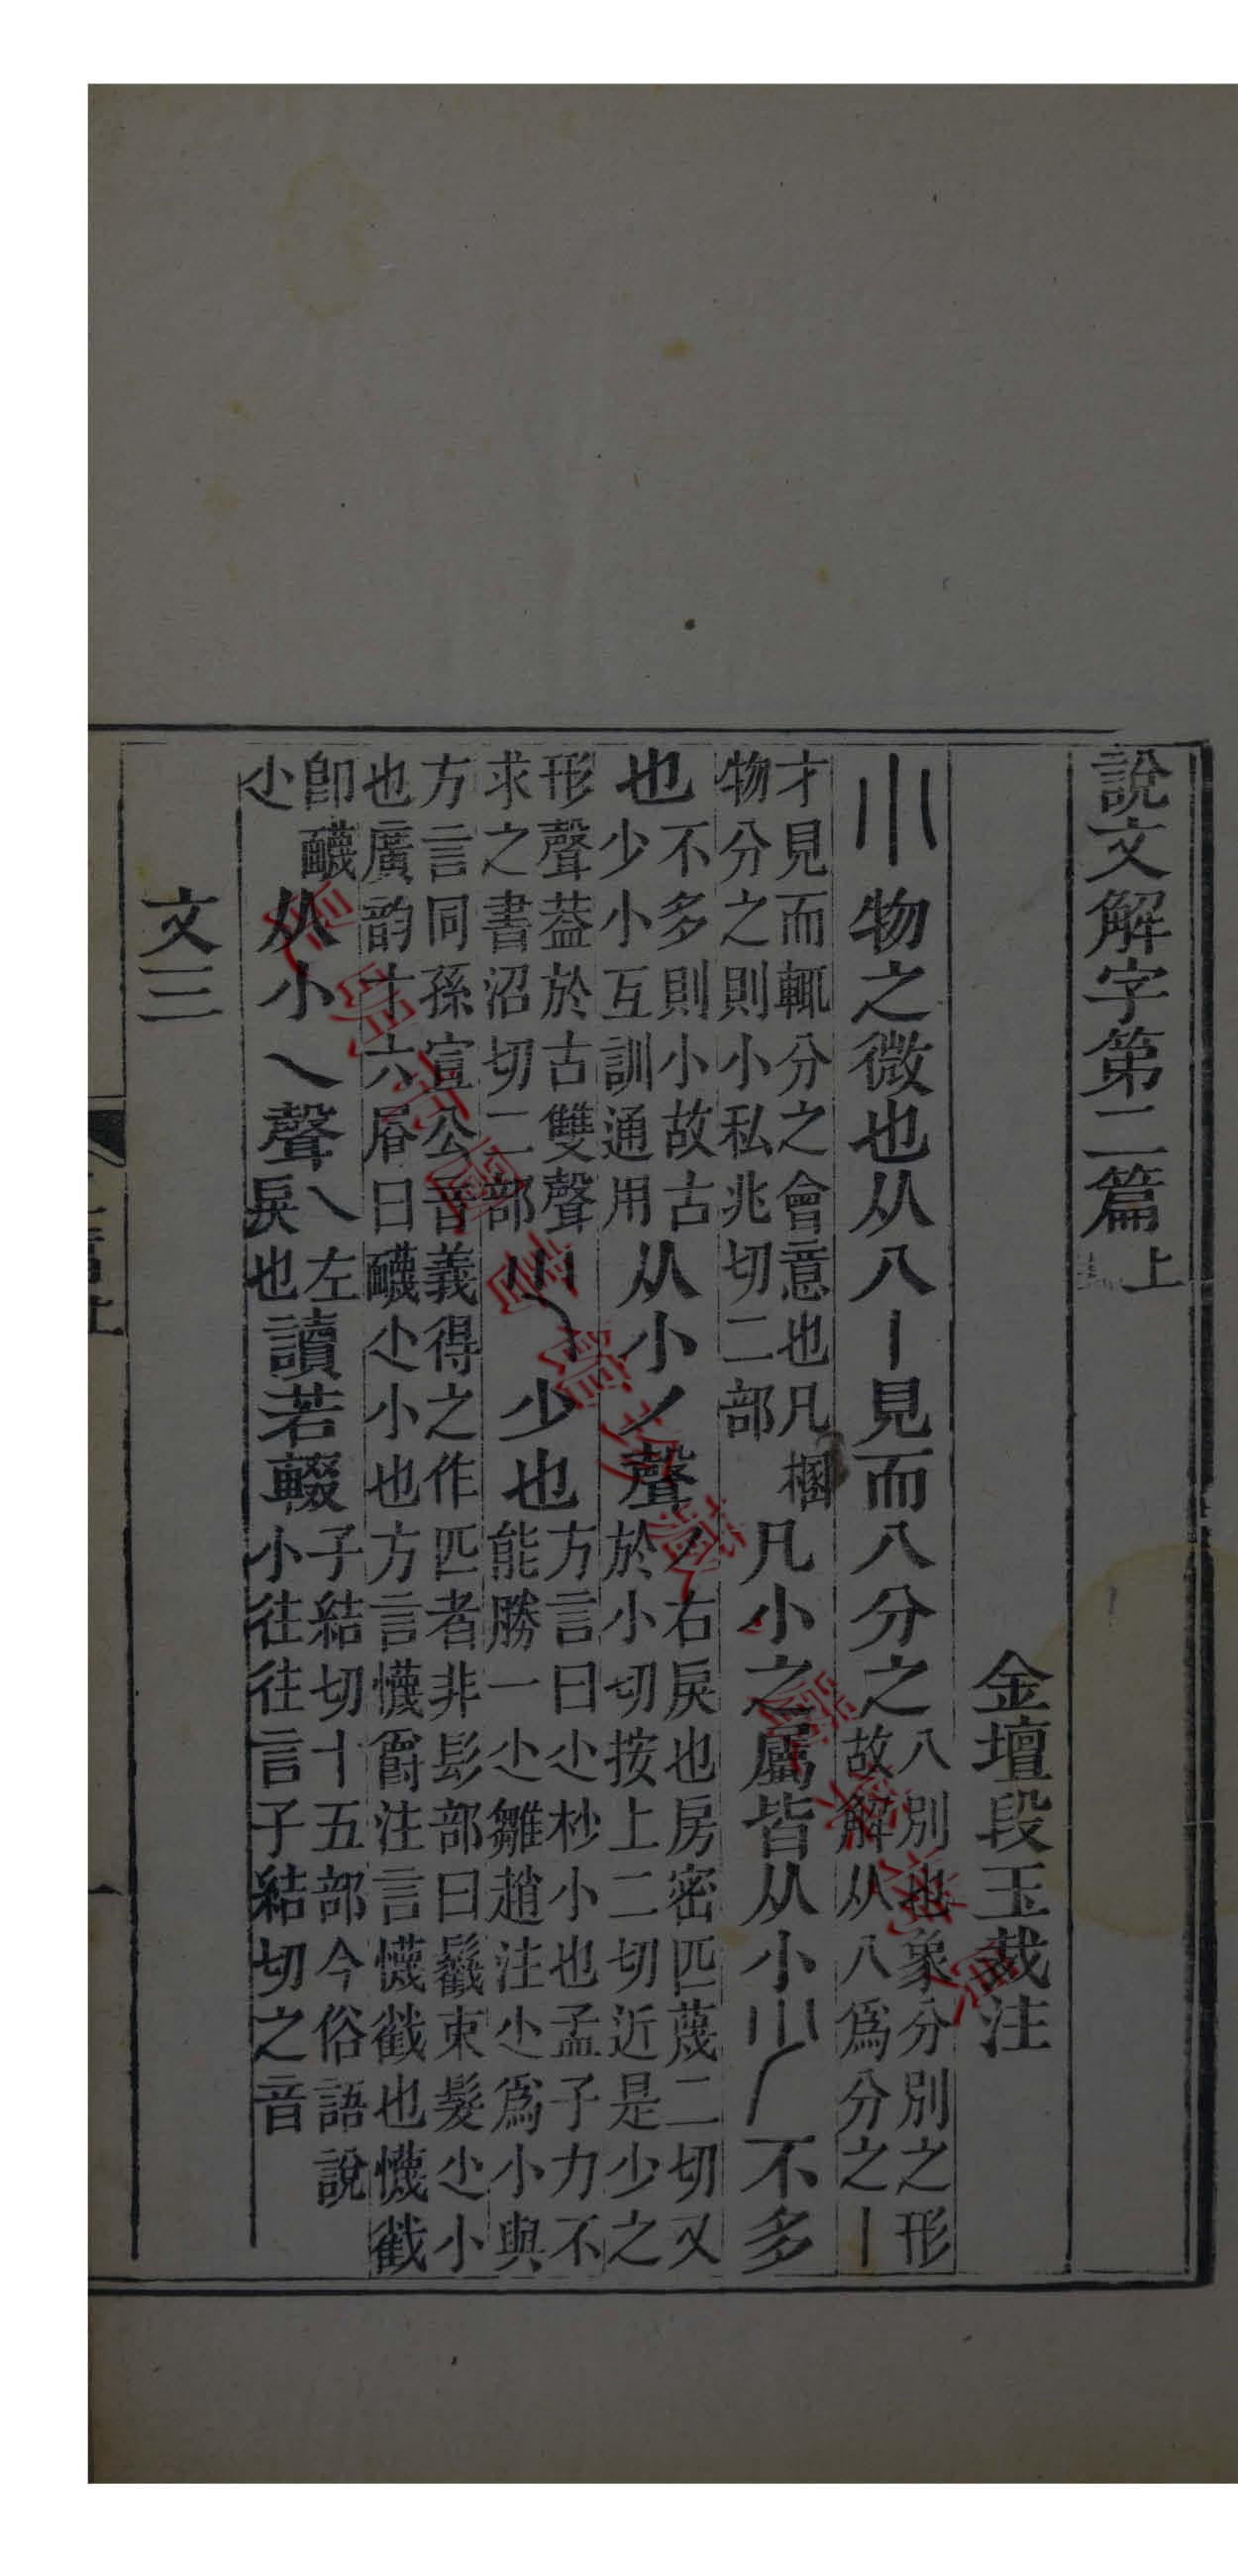 說文解字第二篇上
金壇段玉裁注
小物之微也从八丨見而八分之八別也象分別之形故解从八爲分之丨
才見而輒分之會意也凡𣝗物分之則小私兆切二部凡小之屬皆从小少不多
也不多則小故古少小互訓通用从小丿聲丿右戾也房密匹蔑二切又於小切按上二切近是少之
形聲葢於古雙聲求之書沼切二部𡮐少也方言曰𡭔杪小也孟子力不能勝一𡭔雛趙注𡭔爲小與
方言同孫宣公音義得之作匹者非髟部曰䰖束髮𡭔小也廣韵十六屑曰䤘𡭔小也方言懱爵注言懱㦰也懱㦰
卽䤘𡭔从小乀聲乀左戾也讀若輟子結切十五部今俗語說小往往言子結切之音
文三